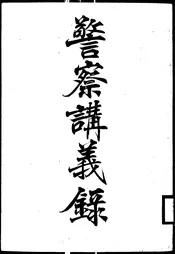 警察講義録